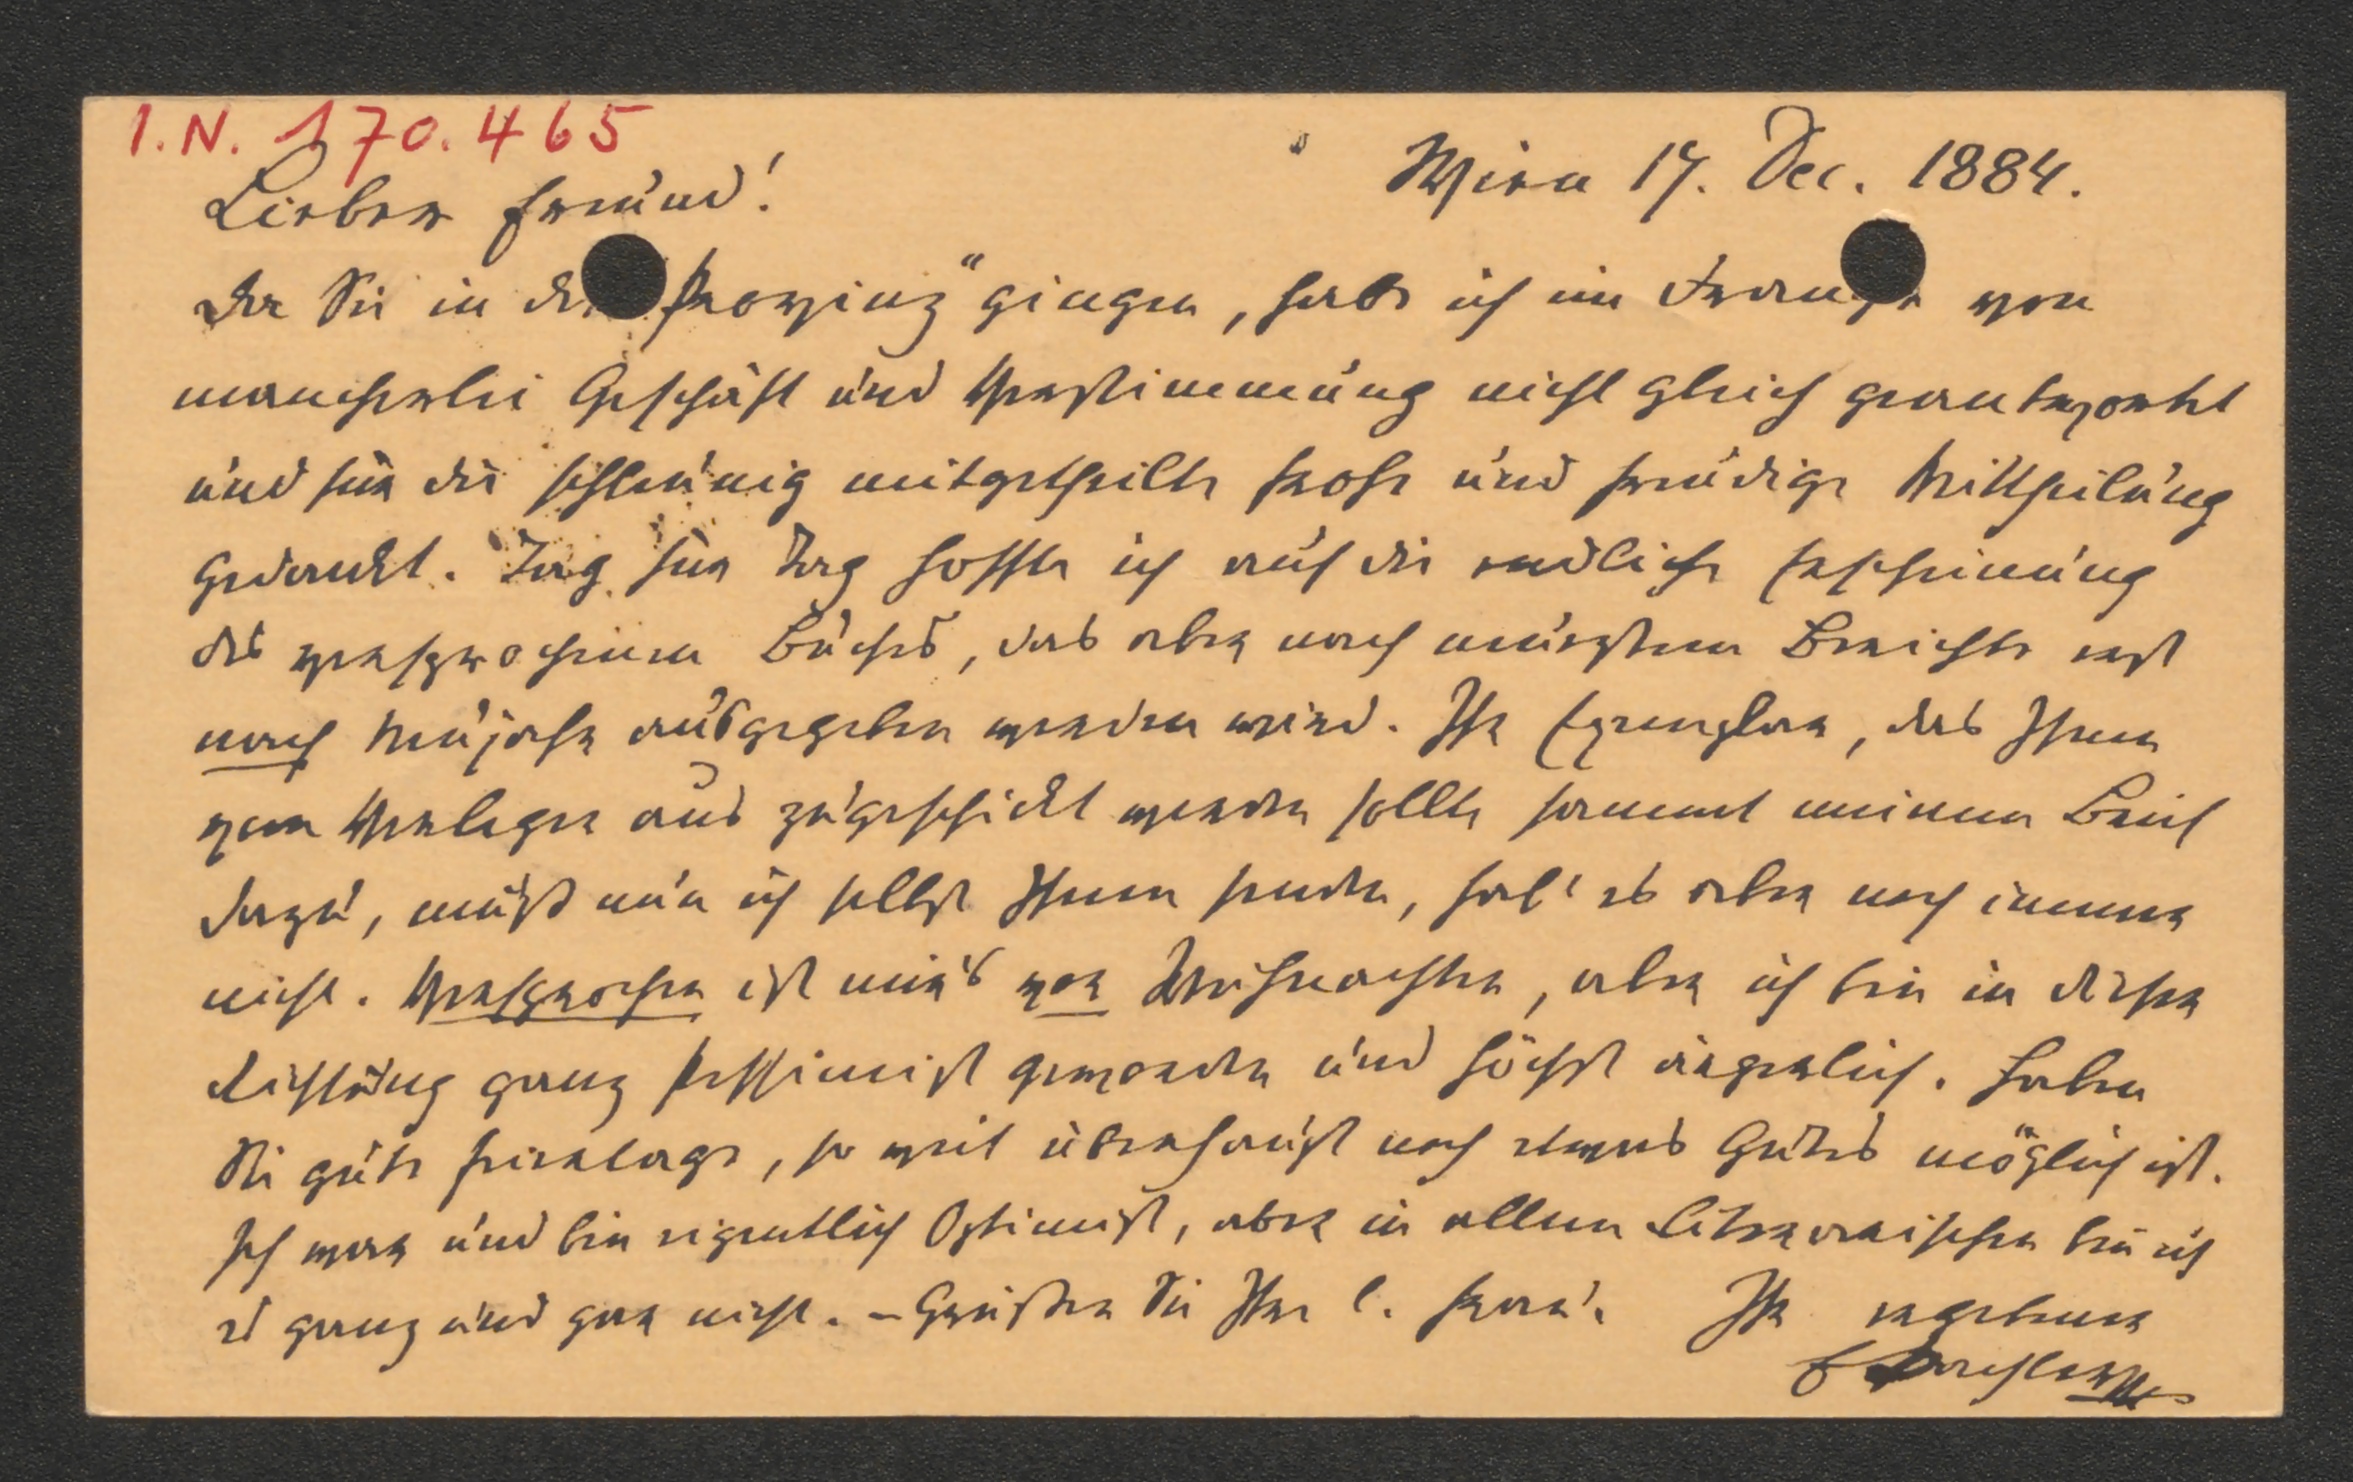 I.N. 170.465
Wien 17. Dec. 1884.
Lieber Freund!
Da Sie in die Provinz" gingen, habe ich im Drange von
mancherlei Geschäft und Verstimmung nicht gleich geantwortet
und für die schleunig mitgetheilte frohe und freudige Mittheilung
gedankt. Tag für Tag hoffte ich auf die endliche Erscheinung
des versprochenen Buches, das aber nach neuestem Berichte erst
nach Neujahr ausgegeben werden wird. Ihr Exemplar, das Ihnen
vom Verleger aus zugeschickt werden sollte sammt meinem Brief
dazu, muß nun ich selbst Ihnen senden, hab' es aber noch immer
nicht. Versprochen ist mir's vor Weihnachten, aber ich bin in dieser
Richtung ganz Pessimist geworden und höchst ärgerlich. Haben
Sie gute Feiertage, so weit überhaupt noch etwas Gutes möglich ist.
Ich war und bin eigentlich Optimist, aber in allem Literarischen bin ich
es ganz und gar nicht. – Grüßen Sie Ihre l. Frau. Ihr ergebener